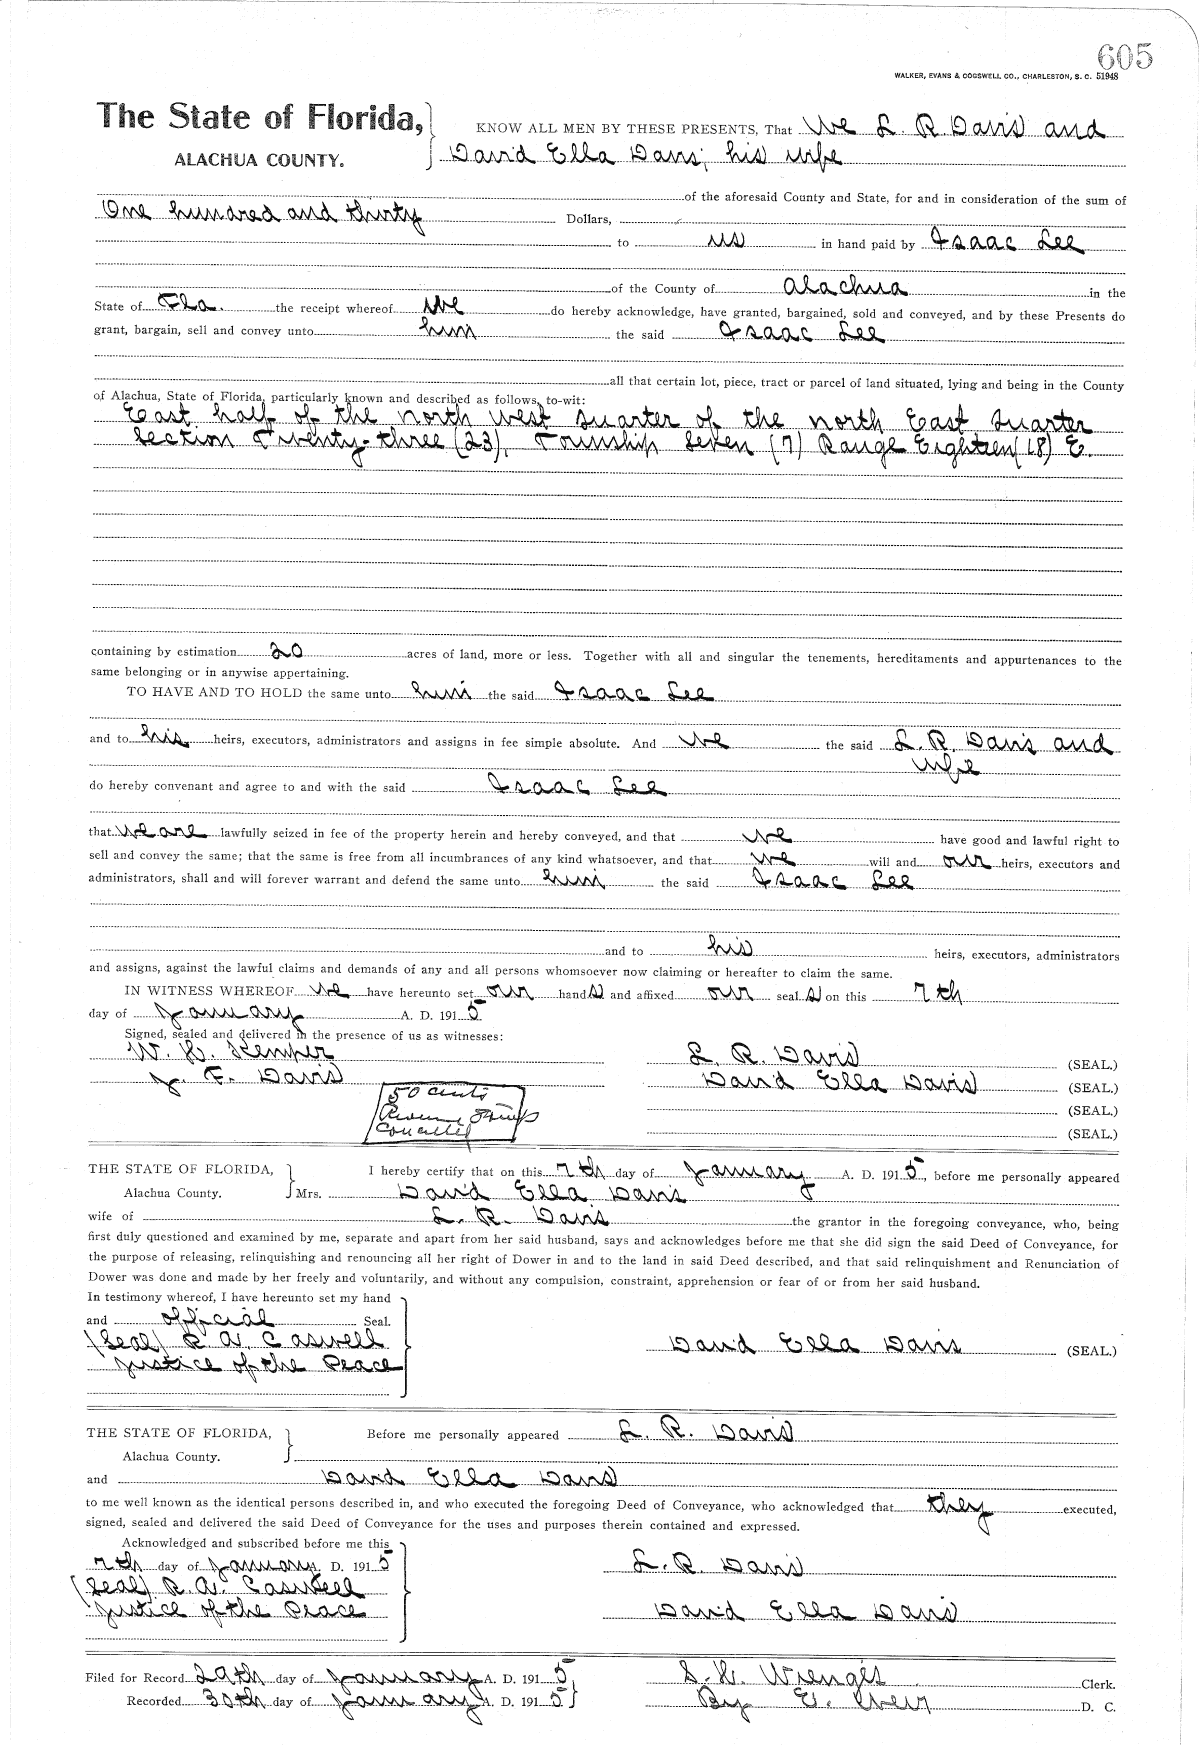 605
WALKER, EVANS & COGSWELL CO., CHARLESTON, S. C. 51948
The State of Florida, KNOW ALL MEN BY THESE PRESENTS, That We L. R Davis and
ALACHUA COUNTY. David Ella Davis, his wife
of the aforesaid County and State, for and in consideration of the sum of
One hundred and thirty Dollars,
to us in hand paid by Isaac Lee
of the County of Alachua in the
State of Fla. the receipt whereof we do hereby acknowledge, have granted, bargained, sold and conveyed, and by these Presents do
grant, bargain, sell and convey unto him the said Isaac Lee
all that certain lot, piece, tract or parcel of land situated, lying and being in the County
of Alachua, State of Florida, particularly known and described as follows, to-wit:
East half of the north west quarter of the north East quarter
Section Twenty-three (23), Township Seven (7) Range Eighteen (18) E.
containing by estimation 20 acres of land, more or less. Together with all and singular the tenements, hereditaments and appurtenances to the
same belonging or in anywise appertaining.
TO HAVE AND TO HOLD the same unto him the said Isaac Lee
and to his heirs, executors, administrators and assigns in fee simple absolute. And we the said L. R. Davis and
wife
do hereby convenant and agree to and with the said Isaac Lee
that we are lawfully seized in fee of the property herein and hereby conveyed, and that we have good and lawful right to
sell and convey the same; that the same is free from all incumbrances of any kind whatsoever, and that we will and our heirs, executors and
administrators, shall and will forever warrant and defend the same unto him the said Isaac Lee
and to his heirs, executors, administrators
and assigns, against the lawful claims and demands of any and all persons whomsoever now claiming or hereafter to claim the same.
IN WITNESS WHEREOF we have hereunto set our hand s and affixed our seal s on this 7th
day of January A. D. 1915
Signed, sealed and delivered in the presence of us as witnesses:
W. H. Kemper L. R. Davis (SEAL.)
J. F. Davis David Ella Davis (SEAL.)
50 cents (SEAL.)
Revenue Stamps
Cancelled (SEAL.)
THE STATE OF FLORIDA, I hereby certify that on this 7th day of January A. D. 1915, before me personally appeared
Alachua County. Mrs. David Ella Davis
wife of L. R. Davis the grantor in the foregoing conveyance, who, being
first duly questioned and examined by me, separate and apart from her said husband, says and acknowledges before me that she did sign the said Deed of Conveyance, for
the purpose of releasing, relinquishing and renouncing all her right of Dower in and to the land in said Deed described, and that said relinquishment and Renunciation of
Dower was done and made by her freely and voluntarily, and without any compulsion, constraint, apprehension or fear of or from her said husband.
In testimony whereof, I have hereunto set my hand
and official Seal.
(Seal) R. A. Caswell David Ella Davis (SEAL.)
Justice of the Peace
THE STATE OF FLORIDA, Before me personally appeared L. R. Davis
Alachua County.
and David Ella Davis
to me well known as the identical persons described in, and who executed the foregoing Deed of Conveyance, who acknowledged that they executed,
signed, sealed and delivered the said Deed of Conveyance for the uses and purposes therein contained and expressed.
Acknowledged and subscribed before me this
7th day of January A. D. 1915 L. R. Davis
(Seal) R. A. Caswell
Justice of the Peace David Ella Davis
Filed for Record 29th day of January A. D. 1915 S. H. Wienges Clerk.
Recorded 30th day of January A. D. 1915 By E. D. C.